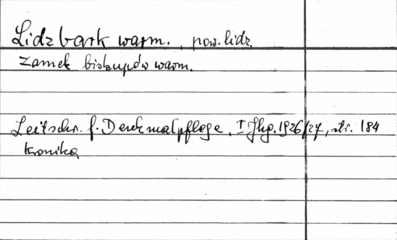 Lidzbark warm., pow. lidz.
Zamek biskupów warm.
Zeitschr. f. Denkmalpflege, I Jhg. 1926/27, str. 184
kronika